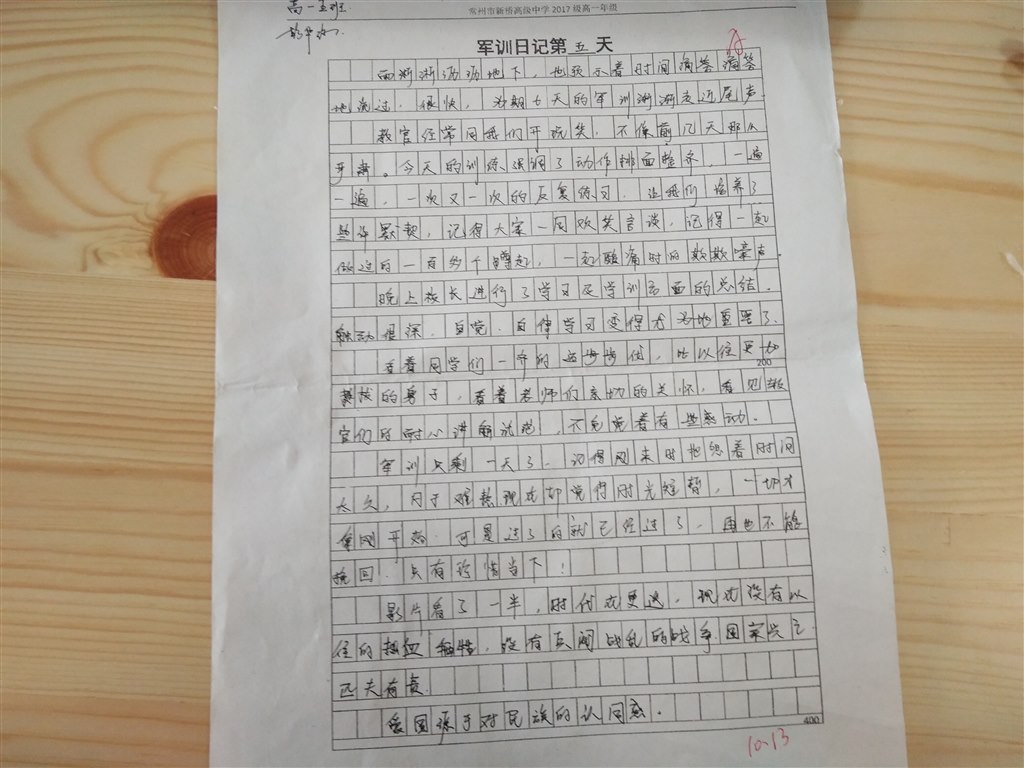 高一五班
常州市新桥高级中学2017级高一年级
军训日记第五天
雨淅淅沥沥地下，也预示着时间滴答滴答
地流过．很快，为期七天的军训渐渐走近尾声．
教官经常同我们开玩笑．不像前几天那么
严肃。今天的训练强调了动作排面整齐，一遍
一遍，一次又一次的反复练习．让我们培养了
些许默契，记得大家一同欢笑言谈，记得一起
做过的一百多个蹲起，一起酸痛时的欢欢嚎声．
晚上校长进行了学习及学训方面的总结．
触动很深．自觉．自律学习变得尤为地重要了．
看着同学们一齐的步伐，比以往更加
挺拔的身子，看着老师们亲切的关怀，看见教
官们的耐心讲解试范，不免觉着有些感动．
军训只剩一天了．记得刚来时抱怨着时间
太久，内于难熬现在却觉得时光短暂，一切才
像刚开始．可是过了的就已经过了．再也不能
挽回．只有珍惜当下！
影片看了一半，时代在更迭，现在没有以
往的热血牺牲，没有兵阀战乱的战争国家兴亡
匹夫有责
爱国源于对民族的认同感．
200
400
10.13